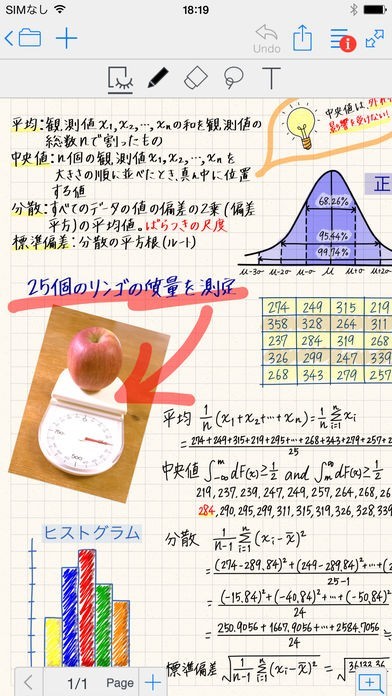 SIMなし 18:19
Undo
平均:観測値x1,x2,…,xnの和を観測値の
総数nで割ったもの
中央値:n個の観測値x1,x2,…,xnを
大きさの順に並べたとき,真ん中に位置
する値
分散:すべてのデータの値の偏差の2乗(偏差
平方)の平均値。ばらつきの尺度
標準偏差:分散の平方根(ルート)
中央値は、外れ
影響を受けない!
正
68.26%
95.44%
99.74%
μ-3σ μ-2σ μ-σ μ μ+σ μ+2σ
25個のリンゴの質量を測定
274 249 315 219
358 328 264 311
237 284 319 268
326 299 247 339
268 343 279 257
平均 1/n (x1+x2+…+xn)=1/n Σ(i=1→n) xi
=274+249+315+219+295+…+268+343+279+257+2
25
中央値 ∫(-∞→m) dF(x)≧1/2 and ∫(m→∞) dF(x)≧1/2
219, 237, 239, 247, 249, 257, 264, 268, 26
284, 290, 295, 299, 311, 315, 319, 326, 328, 339
分散 1/(n-1) Σ(i=1→n) (xi-x̄)²
=(274-289.84)²+(249-289.84)²+…+(
25-1
=(-15.84)²+(-40.84)²+…+(-50.84)²
24
=250.9056+1667.9056+…+2584.7056
24
標準偏差 √(1/(n-1) Σ(i=1→n) (xi-x̄)²) =
ヒストグラム
1/1 Page